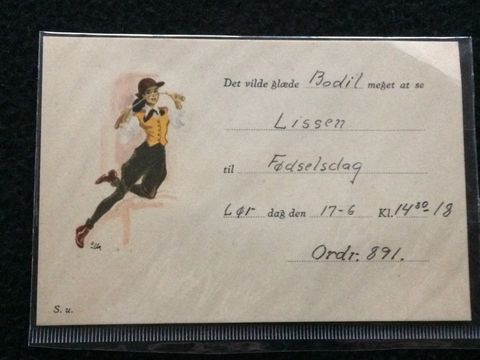 Det vilde glæde Bodil meget at se
Lissen
til Fødselsdag
Lør dag den 17-6 Kl. 14³⁰-18
Ordr. 891.
S. u.